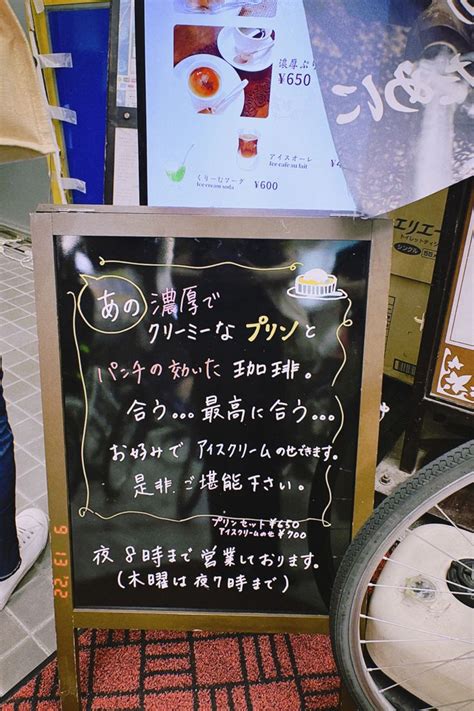 濃厚ぷり
¥650
アイスオーレ
Ice cafe au lait
くりーむソーダ
Ice cream soda
¥600
ために
エリエール
トイレットティシュー
シングル
あの濃厚で
クリーミーなプリンと
パンチの効いた珈琲。
合う...最高に合う...
お好みでアイスクリームのせできます。
是非ご堪能下さい。
プリンセット¥650
アイスクリームのせ¥700
夜8時まで営業しております。
(木曜は夜7時まで)
9 13 '22